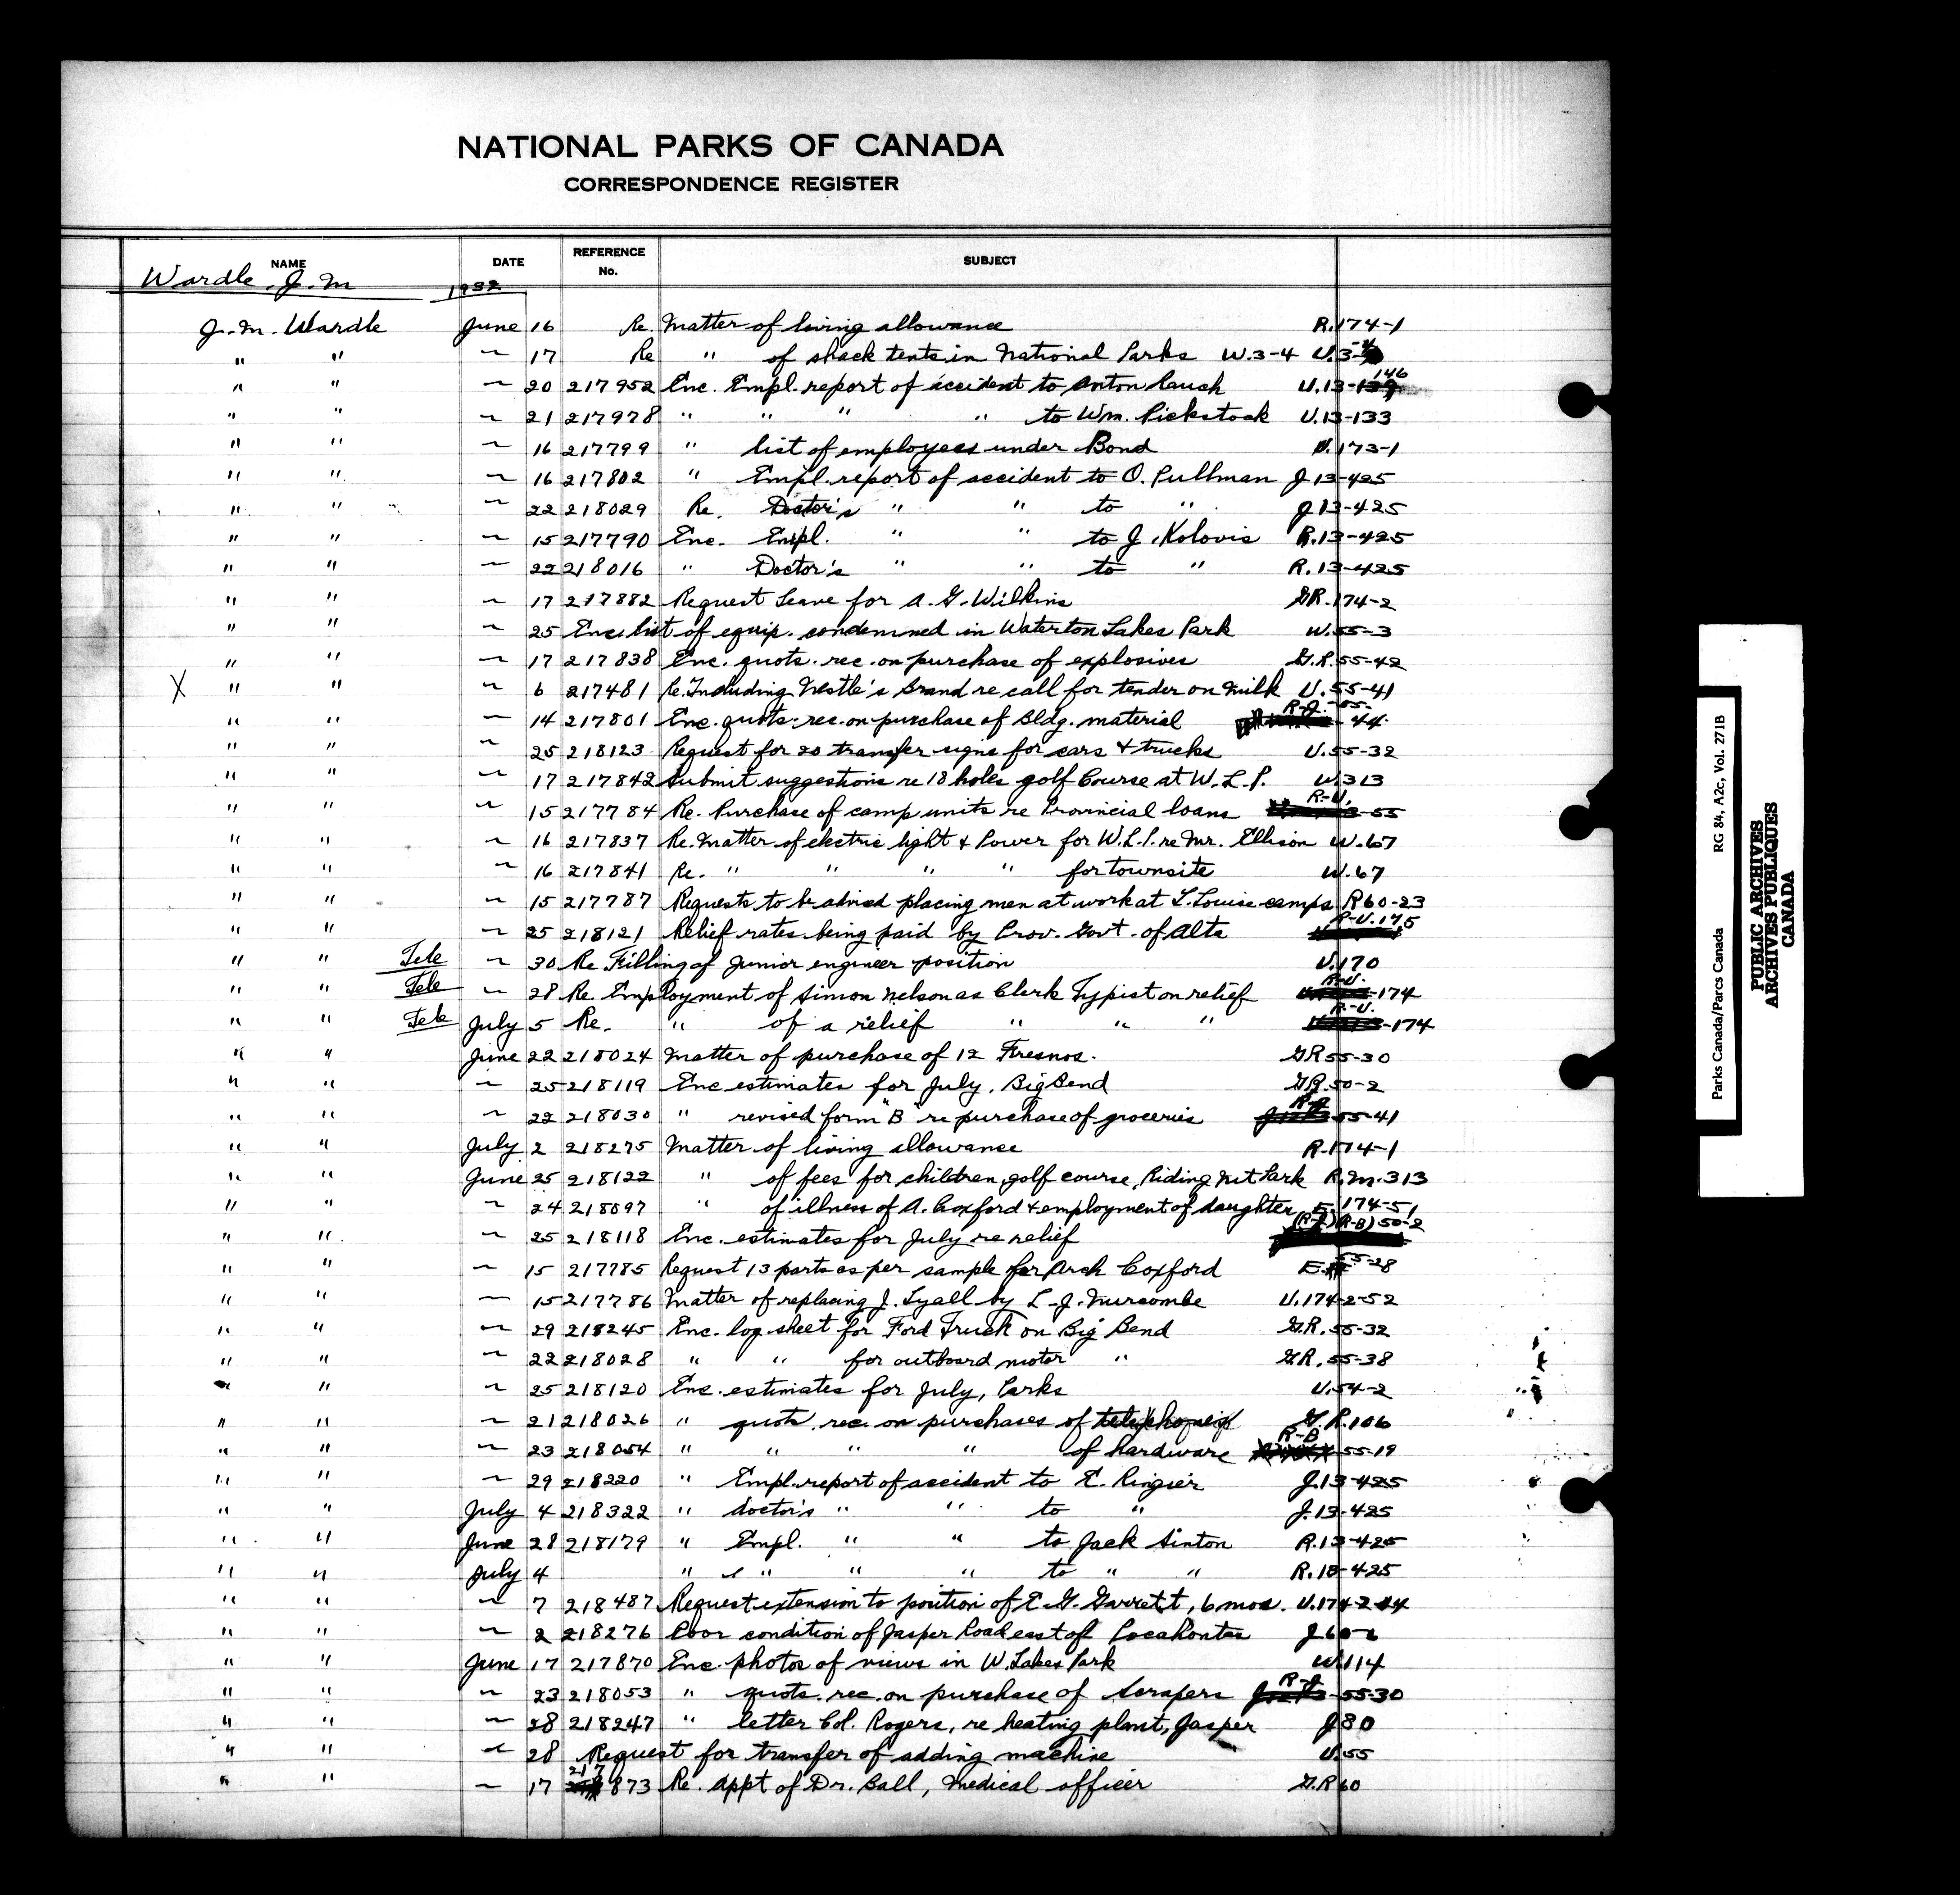 NATIONAL PARKS OF CANADA
CORRESPONDENCE REGISTER
NAME DATE REFERENCE No. SUBJECT
Wardle, J. M 1932
J. M. Wardle June 16 Re. Matter of living allowance R.174-1
" " ~ 17 Re " of shack tents in National Parks W.3-4 U.3-4
" " ~ 20 217952 Enc. Empl. report of accident to Anton Rauch U.13-146
" " ~ 21 217978 " " " " to Wm. Pickstock U.13-133
" " ~ 16 217799 " list of employees under Bond U.173-1
" " ~ 16 217802 " Empl. report of accident to O. Pullman J 13-425
" " ~ 22 218029 Re. Doctor's " " to " J 13-425
" " ~ 15 217790 Enc. Empl. " " to J. Kolovis R.13-425
" " ~ 22 218016 " Doctor's " " to " R.13-425
" " ~ 17 217882 Request Leave for A. G. Wilkins GR.174-2
" " ~ 25 Enc. list of equip. condemned in Waterton Lakes Park W.55-3
" " ~ 17 217838 Enc. quots. rec. on purchase of explosives G.R.55-42
X " " ~ 6 217481 Re. Including Nestle's Brand re call for tender on Milk U.55-41
" " ~ 14 217801 Enc. quots. rec. on purchase of Bldg. material R-J.-55-44
" " ~ 25 218123 Request for 20 transfer signs for cars & trucks U.55-32
" " ~ 17 217842 Submit suggestions re 18 holes golf Course at W.L.P. W.313
" " ~ 15 217784 Re. Purchase of camp units re Provincial loans R-U.-55
" " ~ 16 217837 Re. Matter of electric light & Power for W.L.P. re Mr. Ellison W.67
" " ~ 16 217841 Re. " " " " for townsite W.67
" " ~ 15 217787 Requests to be advised placing men at work at L. Louise camps R60-23
" " ~ 25 218121 Relief rates being paid by Prov. Govt. of Alta R-U.175
" " Tele ~ 30 Re Filling of Junior engineer position U.170
" " Tele ~ 28 Re. Employment of Simon Nelson as Clerk Typist on relief R-U.-174
" " Tele July 5 Re. " of a relief " " " R-U.-174
" " June 22 218024 Matter of purchase of 12 Fresnos. GR 55-30
" " ~ 25 218119 Enc estimates for July, Big Bend GR.50-2
" " ~ 22 218030 " revised form "B" re purchase of groceries R-J 55-41
" " July 2 218275 Matter of living allowance R.174-1
" " June 25 218122 " of fees for children, golf course, Riding Mt Park R.M.313
" " ~ 24 218097 " of illness of A. Coxford & employment of daughter E. 174-51
" " ~ 25 218118 Enc. estimates for July re relief (R-J)(R-B) 50-2
" " ~ 15 217785 Request 13 parts as per sample for Arch Coxford E 55-28
" " ~ 15 217786 Matter of replacing J. Lyall by L. J. Nurcombe U.174-2-52
" " ~ 29 218245 Enc. log sheet for Ford Truck on Big Bend G.R.55-32
" " ~ 22 218028 " " for outboard motor " G.R.55-38
" " ~ 25 218120 Enc. estimates for July, Parks U.54-2
" " ~ 21 218026 " quots. rec. on purchases of G.R.106
" " ~ 23 218054 " " " " of hardware R-B 55-19
" " ~ 29 218220 " Empl. report of accident to E. Ringier J.13-425
" " July 4 218322 " doctor's " " to " J.13-425
" " June 28 218179 " Empl. " " to Jack Sinton R.13-425
" " July 4 " " " " to " " R.13-425
" " ~ 7 218487 Request extension to position of E. G. Garrett, 6 mos. U.174-2-44
" " ~ 2 218276 Poor condition of Jasper Road east of Pocahontas J60-
" " June 17 217870 Enc. photos of views in W. Lakes Park W.114
" " ~ 23 218053 " quots. rec. on purchase of Scrapers R-J-55-30
" " ~ 28 218247 " letter Col. Rogers, re heating plant, Jasper J80
" " ~ 28 Request for transfer of adding machine U.55
" " ~ 17 217873 Re. Appt of Dr. Ball, Medical officer G.R 60
Parks Canada/Parcs Canada RG 84, A2c, Vol. 271B
PUBLIC ARCHIVES
ARCHIVES PUBLIQUES
CANADA